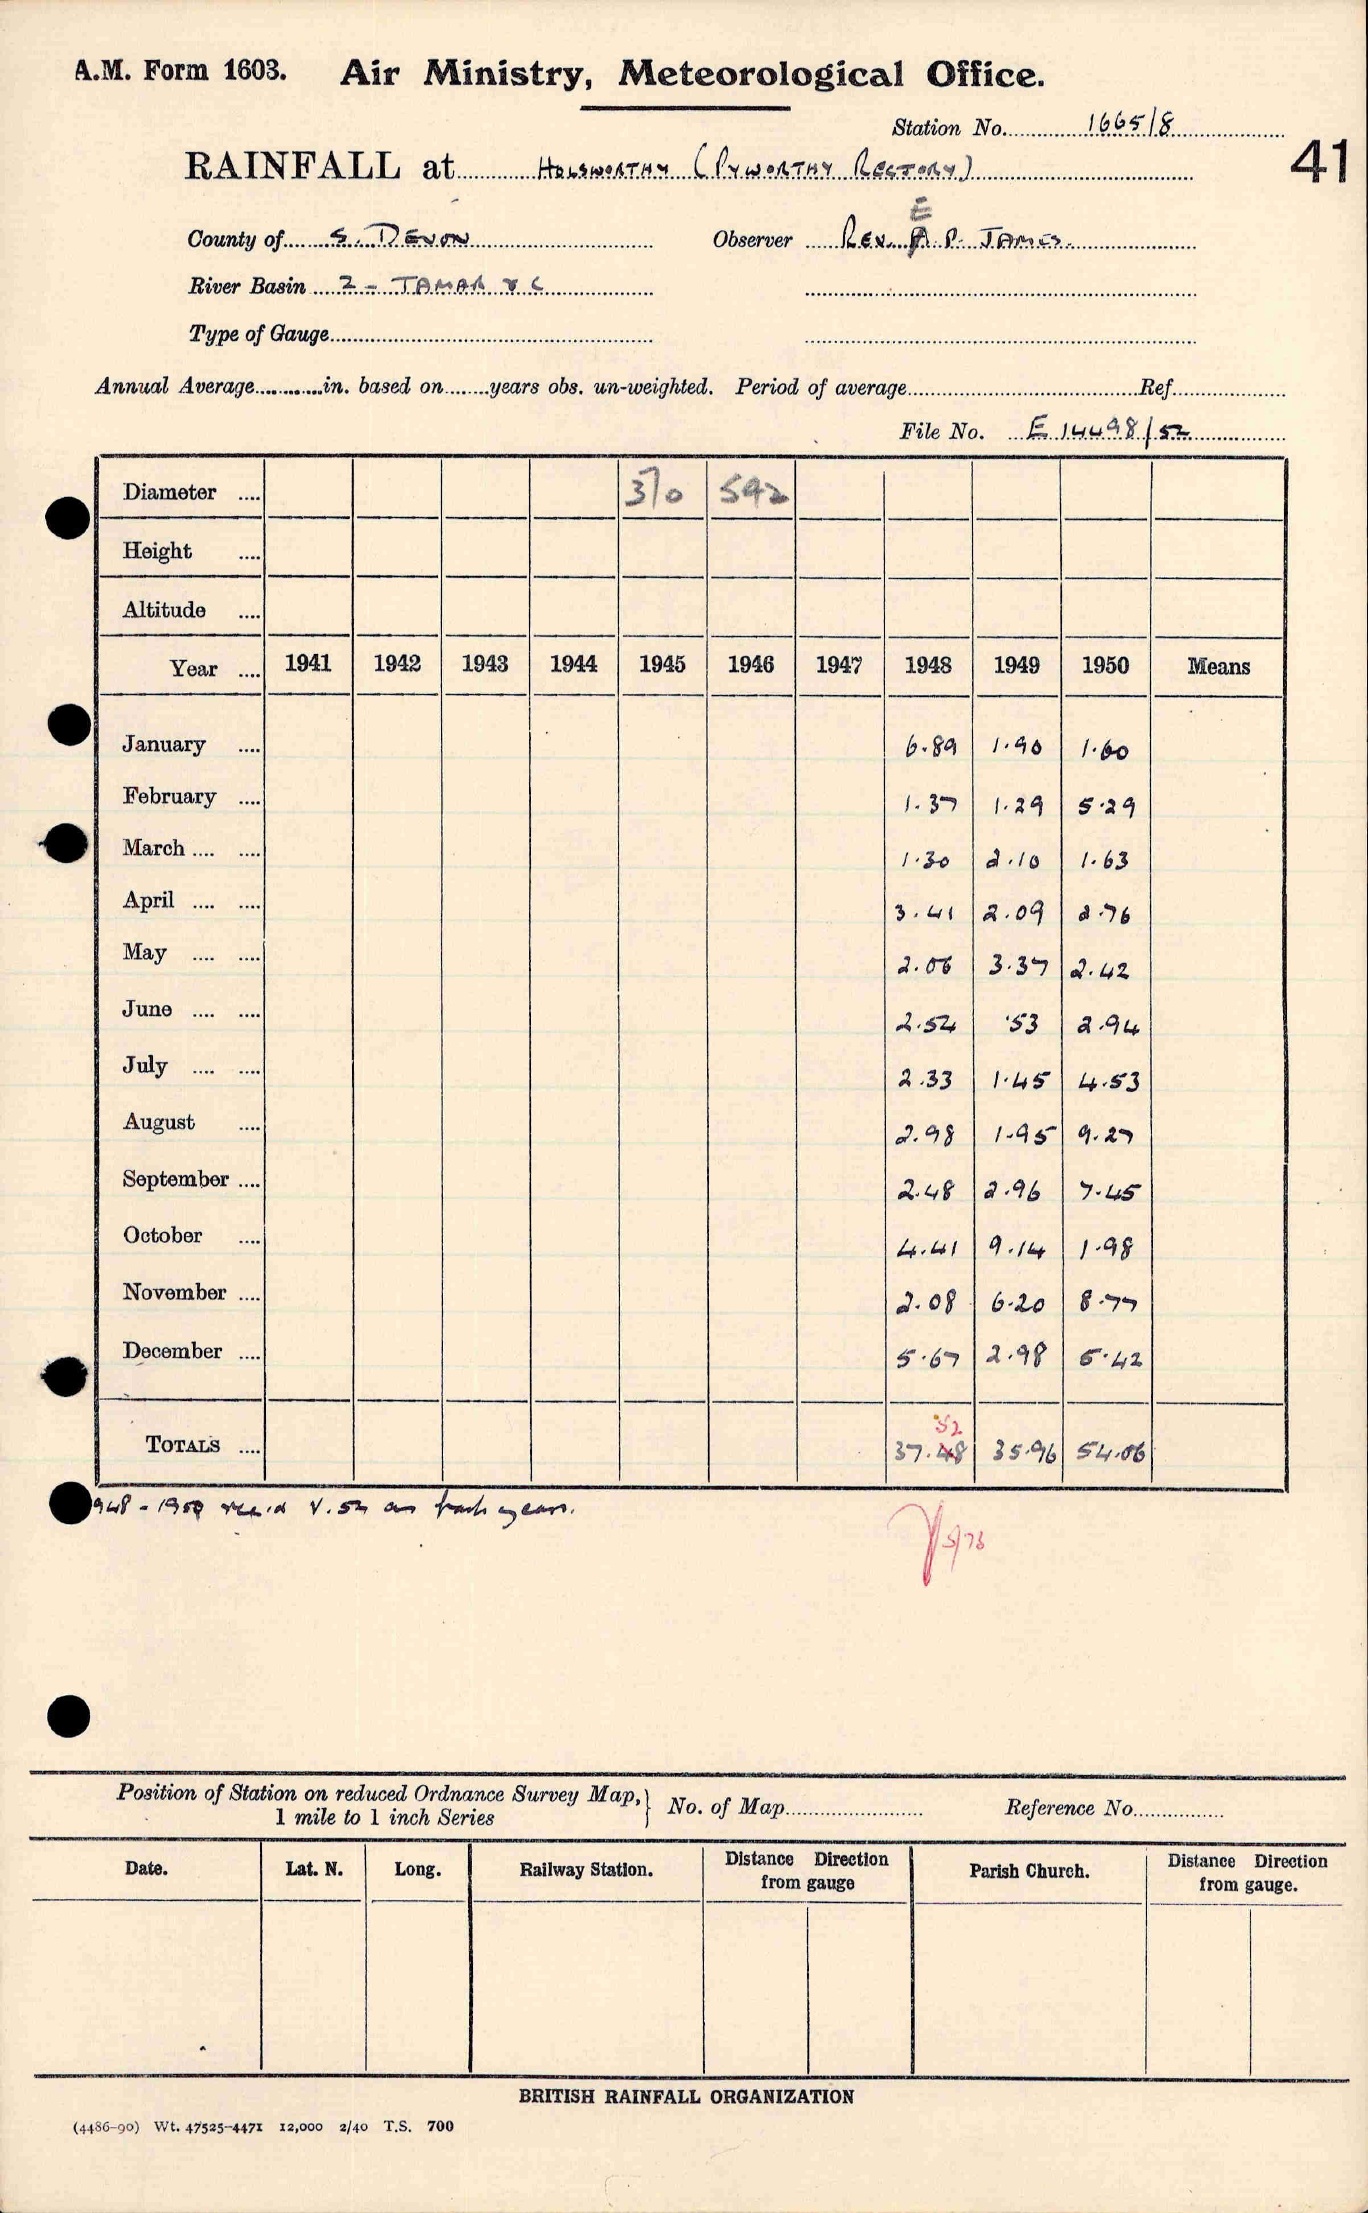 A.M. Form 1603. Air Ministry, Meteorological Office.
Station No. 1665/8
41
RAINFALL at Holsworthy (Pyworthy Rectory)
E
County of S. Devon Observer Rev. A. P. James.
River Basin 2 - Tamar & C
Type of Gauge
Annual Average in. based on years obs. un-weighted. Period of average Ref.
File No. E 14498/52
Diameter 370 592
Height
Altitude
Year 1941 1942 1943 1944 1945 1946 1947 1948 1949 1950 Means
January 6.89 1.90 1.60
February 1.37 1.29 5.29
March 1.30 2.10 1.63
April 3.41 2.09 2.76
May 2.06 3.37 2.42
June 2.54 .53 2.94
July 2.33 1.45 4.53
August 2.98 1.95 9.27
September 2.48 2.96 7.45
October 4.41 9.14 1.98
November 2.08 6.20 8.77
December 5.67 2.98 5.42
52
TOTALS 37.48 35.96 54.06
948 - 1950 rec.d V.52 as back years.
5/73
Position of Station on reduced Ordnance Survey Map, } No. of Map Reference No.
1 mile to 1 inch Series
Date. Lat. N. Long. Railway Station. Distance Direction from gauge Parish Church. Distance Direction from gauge.
BRITISH RAINFALL ORGANIZATION
(4486-90) Wt. 47525-4471 12,000 2/40 T.S. 700